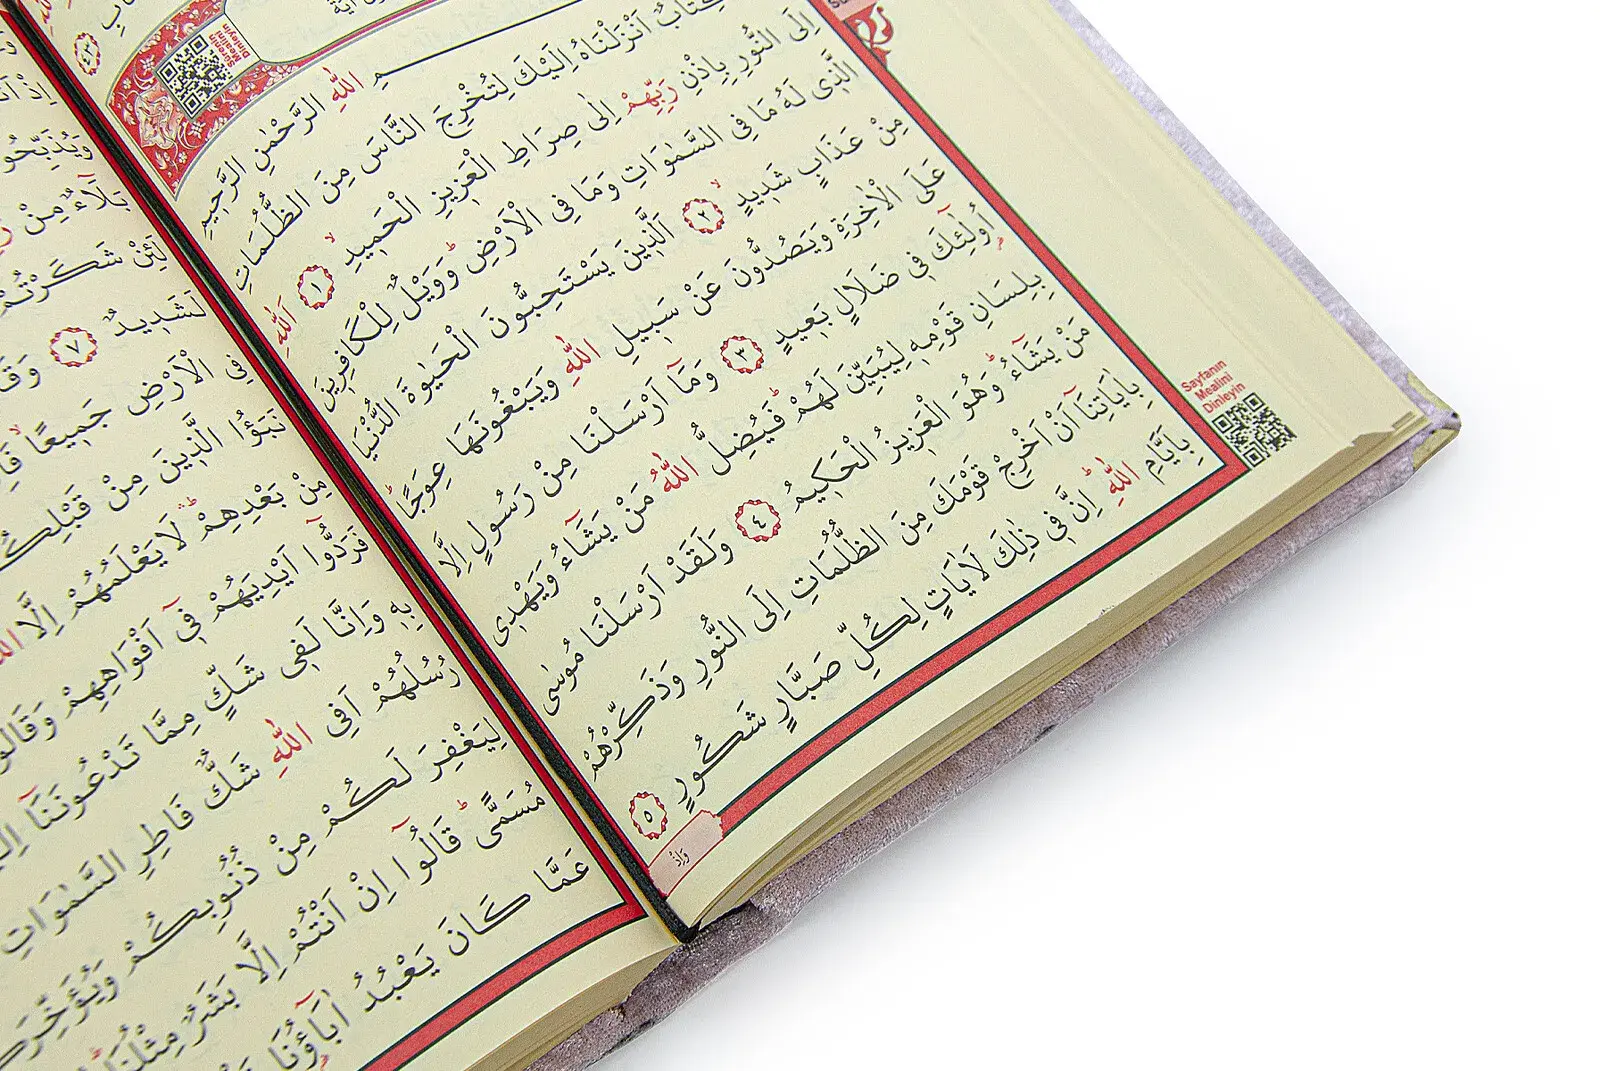 Surenin
Mealini
Dinleyin
اللّٰهِ الرَّحْمٰنِ الرَّحِيمِ
كِتَابٌ اَنْزَلْنَاهُ اِلَيْكَ لِتُخْرِجَ النَّاسَ مِنَ الظُّلُمَاتِ
اِلَى النُّورِ بِاِذْنِ رَبِّهِمْ اِلٰى صِرَاطِ الْعَزِيزِ الْحَمِيدِۙ ﴿١﴾ اَللّٰهِ
الَّذِي لَهُ مَا فِي السَّمٰوَاتِ وَمَا فِي الْاَرْضِۜ وَوَيْلٌ لِلْكَافِرِينَ
مِنْ عَذَابٍ شَدِيدٍۙ ﴿٢﴾ اَلَّذِينَ يَسْتَحِبُّونَ الْحَيٰوةَ الدُّنْيَا
عَلَى الْاٰخِرَةِ وَيَصُدُّونَ عَنْ سَبِيلِ اللّٰهِ وَيَبْغُونَهَا عِوَجًاۜ
اُو۬لٰٓئِكَ فِي ضَلَالٍ بَعِيدٍ ﴿٣﴾ وَمَٓا اَرْسَلْنَا مِنْ رَسُولٍ اِلَّا
بِلِسَانِ قَوْمِهِ لِيُبَيِّنَ لَهُمْۜ فَيُضِلُّ اللّٰهُ مَنْ يَشَٓاءُ وَيَهْدِي
مَنْ يَشَٓاءُۜ وَهُوَ الْعَزِيزُ الْحَكِيمُ ﴿٤﴾ وَلَقَدْ اَرْسَلْنَا مُوسٰى
بِاٰيَاتِنَٓا اَنْ اَخْرِجْ قَوْمَكَ مِنَ الظُّلُمَاتِ اِلَى النُّورِ وَذَكِّرْهُمْ
بِاَيَّامِ اللّٰهِۜ اِنَّ فِي ذٰلِكَ لَاٰيَاتٍ لِكُلِّ صَبَّارٍ شَكُورٍ ﴿٥﴾
وَاِذْ
Sayfanın
Mealini
Dinleyin
بَلَٓاءٌ مِنْ
لَئِنْ شَكَرْتُمْ
لَشَدِيدٌ ﴿٧﴾
فِي الْاَرْضِ جَمِيعًاۙ
نَبَؤُا الَّذِينَ مِنْ قَبْلِكُمْ
مِنْ بَعْدِهِمْۜ لَا يَعْلَمُهُمْ اِلَّا
فَرَدُّٓوا اَيْدِيَهُمْ فِٓي اَفْوَاهِهِمْ
بِهِ وَاِنَّا لَفِي شَكٍّ مِمَّا تَدْعُونَنَٓا
رُسُلُهُمْ اَفِي اللّٰهِ شَكٌّ فَاطِرِ السَّمٰوَاتِ
لِيَغْفِرَ لَكُمْ مِنْ ذُنُوبِكُمْ
مُسَمًّىۜ قَالُٓوا اِنْ اَنْتُمْ اِلَّا بَشَرٌ
عَمَّا كَانَ يَعْبُدُ اٰبَٓاؤُ۬نَا